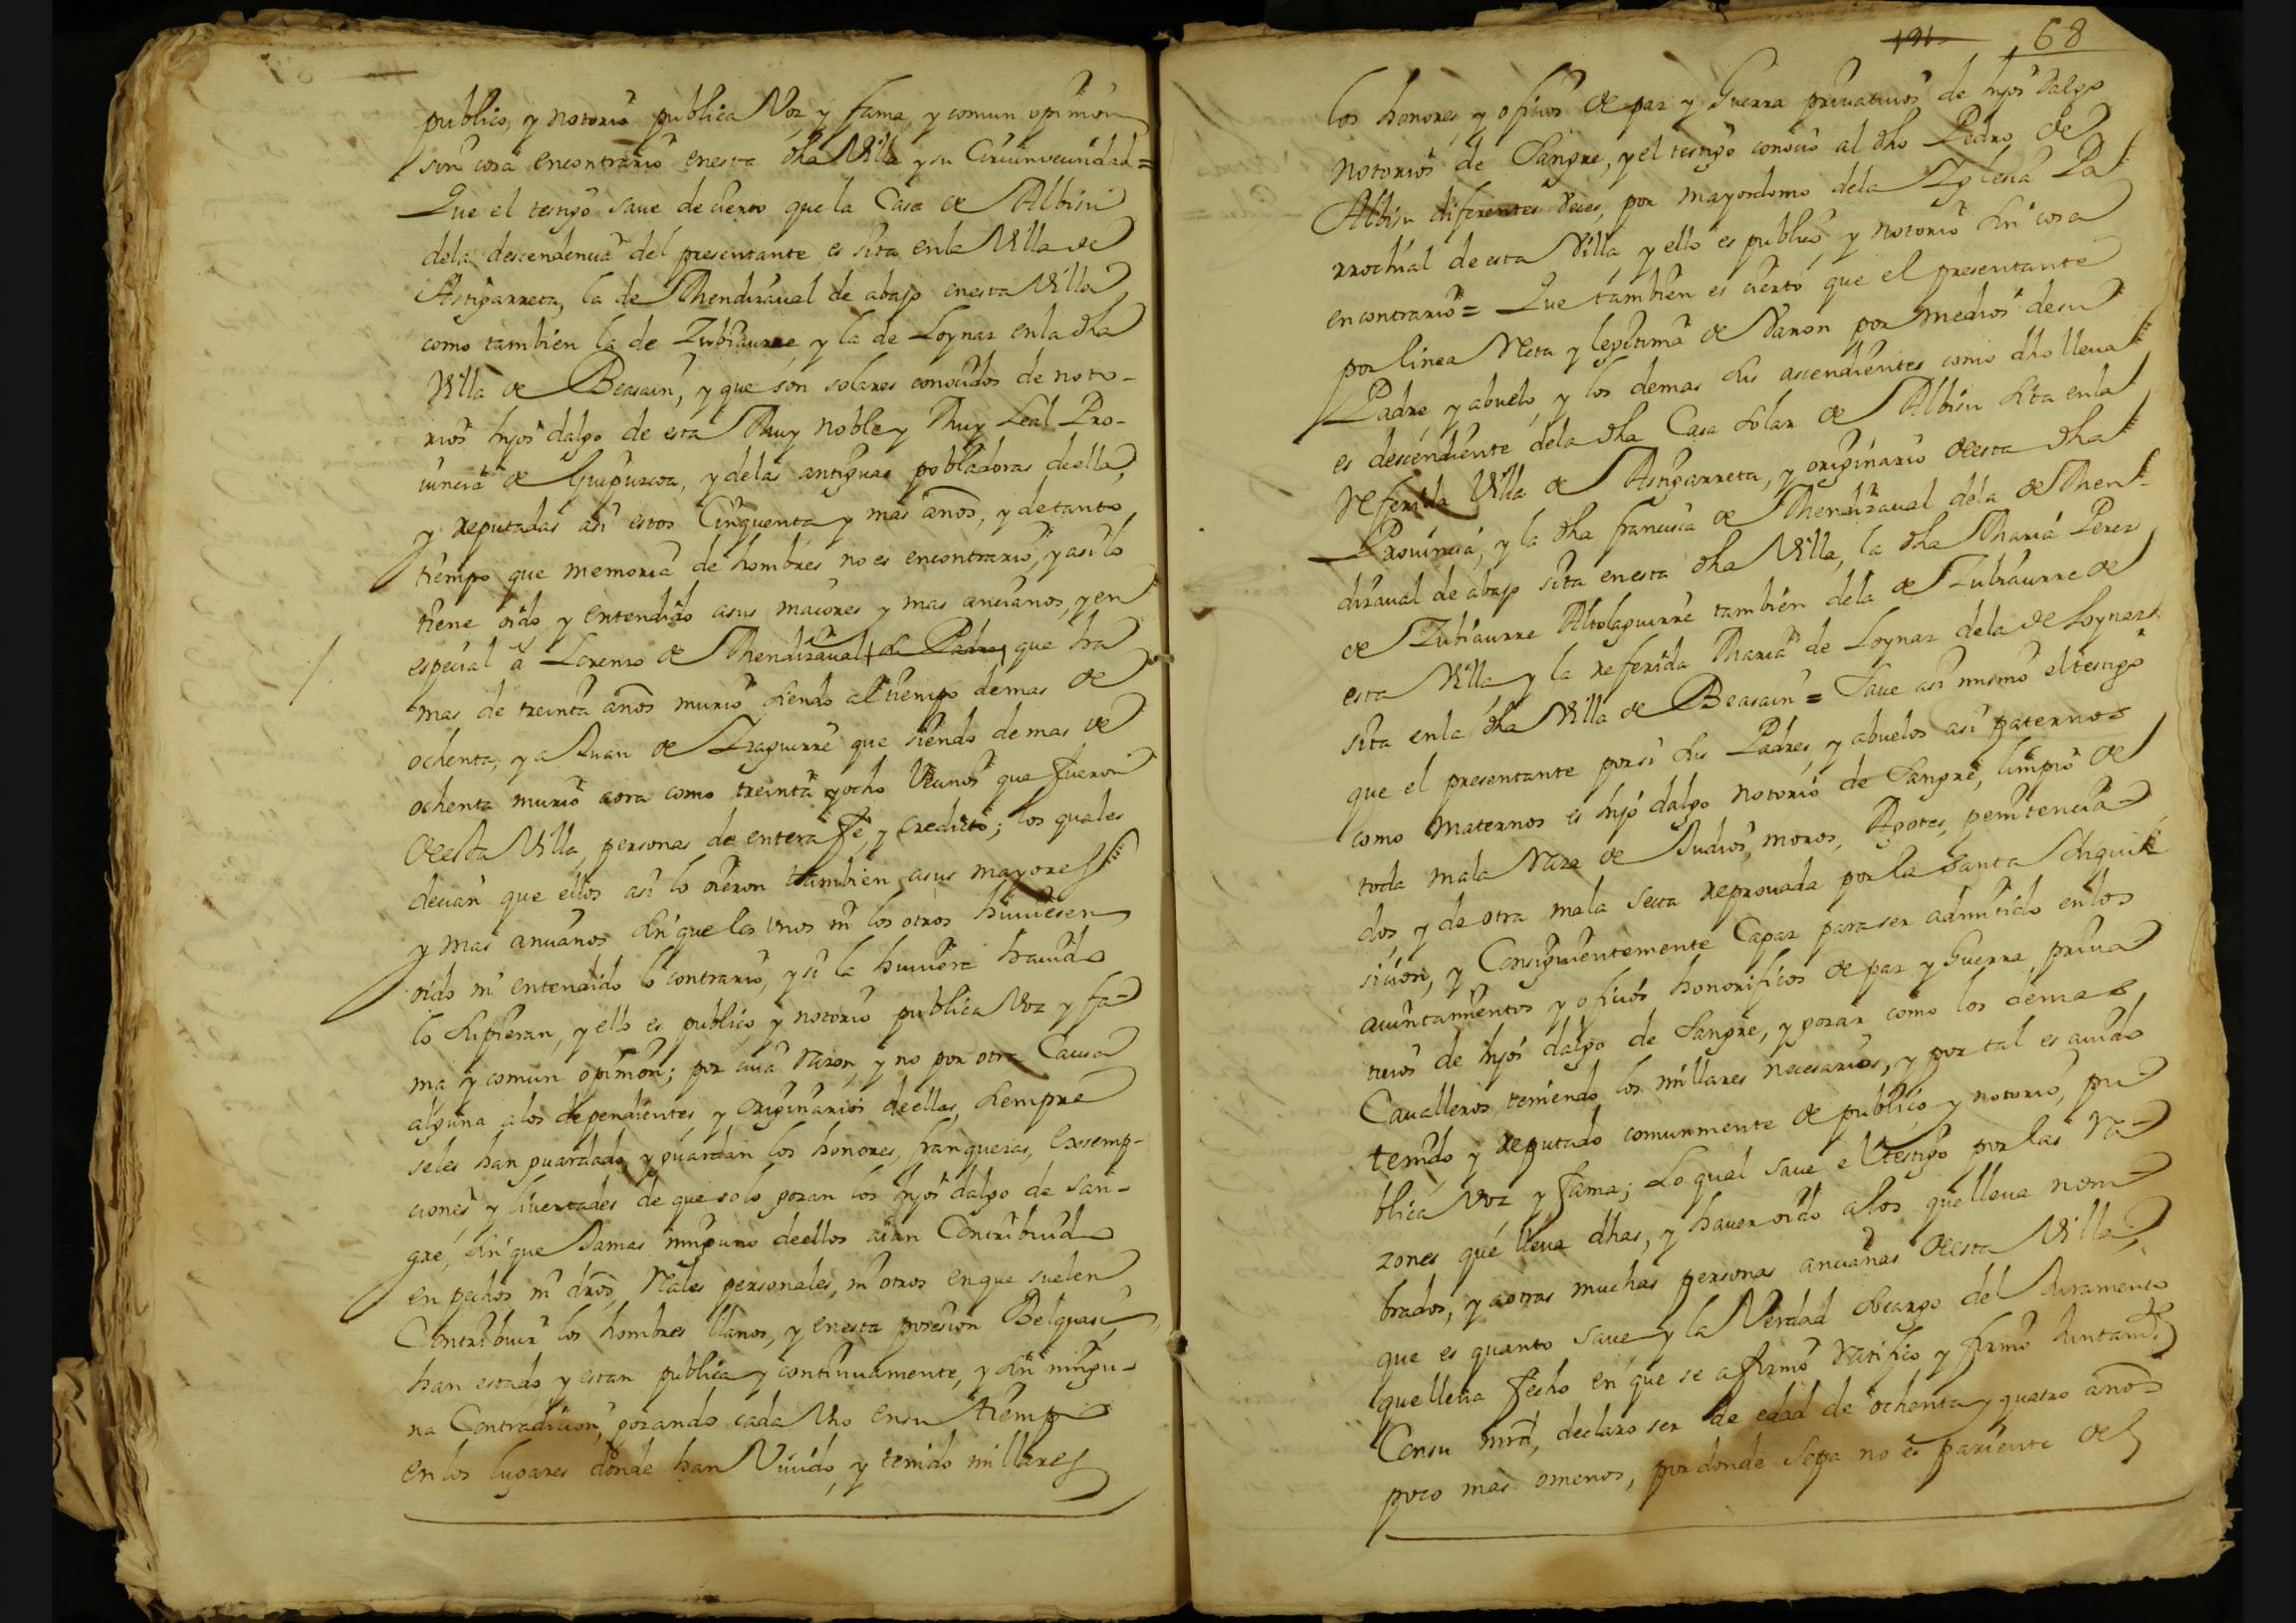 publico, y notorio publica Voz y fama, y comun opinion
sin cosa encontrario enesta dha Villa y su Circunvecindad =
Que el testigo saue de cierto que la Casa de Albisu
dela descendencia del presentante es sita enla Villa de
Astigarreta, la de Mendizaual de abajo enesta Villa
como tambien la de Zubiaurre, y la de Loynaz enla dha
Villa de Beasain, y que son solares conocidos de noto-
rios hijos dalgo de esta Muy noble y Muy Leal Pro-
uincia de Guipuzcoa, y delas antiguas pobladoras deella,
y reputadas asi estos Cinquenta y mas años, y de tanto
tiempo que memoria de hombres no es encontrario, y asi lo
tiene oido y entendido asus maiores y mas ancianos, y en
especial a Lorenzo de Mendizaual su Padre, que ha
mas de treinta años murio siendo al tiempo demas de
ochenta, y a Juan de Yraguirre que siendo demas de
ochenta murio aora como treinta y ocho Vecinos que fueron
deesta Villa, personas de entera fe, y credito; los quales
decian que ellos asi lo oieron tambien, asus mayores
y mas ancianos sin que los vnos ni los otros huuiesen
oido ni entendido lo contrario, y si la huuiera hauido
lo supieran, y ello es publico, y notorio publica Voz y fa-
ma, y comun opinion; por cuia razon, y no por otra Causa
alguna alos dependientes, y originarios deellas, siempre
seles han guardado, y guardan los honores, franquezas, Exsemp-
ciones y liuertades de que solo gozan los hijos dalgo de san-
gre, sin que Jamas ninguno deellos aian Contribuido
en pechos ni dros, Reales personales, ni otros en que suelen
Contribuir los hombres llanos, y enesta posesion Belquasi,
han estado y estan publica y continuamente, y sin ningu-
na Contradicion, gozando cada Vno ensu tiempo
en los lugares donde han Viuido, y tenido millares
68
los honores, y oficios de paz y Guerra priuatiuos de hijos dalgo
notorios de Sangre, y el testigo conocio al dho Pedro de
Albisu diferentes veces, por mayordomo dela Yglesia Pa
rrochial de esta Villa, y ello es publico, y notorio sin cosa
encontrario = Que tambien es cierto que el presentante
por linea Reta y legitima de Varon por medios desu
Padre, y abuelo, y los demas sus ascendientes como dho lleua
es descendiente dela dha Casa solar de Albisu sita enla
referida Villa de Astigarreta, y originario deesta dha
Prouincia, y la dha francisca de Mendizaual dela de Men
dizaual de abajo sita enesta dha Villa, la dha Maria Perez
de Zubiaurre Altolaguirre tambien dela de Zubiaurre de
esta Villa y la referida Maria de Loynaz dela de Loynaz
sita enla dha Villa de Beasain = Saue asi mismo el testigo
que el presentante porsi sus Padres, y abuelos asi paternos
como maternos es hijo dalgo notorio de Sangre, limpio de
toda mala Raza de Judios, moros, Agotes, penitencia-
dos, y de otra mala secta reprouada por la Santa Ynqui-
sicion, y Consiguientemente Capaz para ser admitido enlos
aiuntamientos y oficios honorificos de paz y Guerra priua-
tiuos de hijos dalgo de Sangre, y gozar como los demas
Caualleros, teniendo los millares necesarios, y por tal es auido
tenido y reputado comunmente de publico, y notorio, pu-
blica Voz y fama; Lo qual saue el testigo por las ra-
zones que lleua dhas, y hauer oido alos que lleua nom-
brados, y aotras muchas personas ancianas deesta Villa,
que es quanto saue y la Verdad socargo del Juramento
que lleua fecho en que se afirmo Ratifico y firmo Juntamte
Consu mrd, declaro ser de edad de ochenta y quatro años
poco mas omenos, por donde sepa no es pariente del